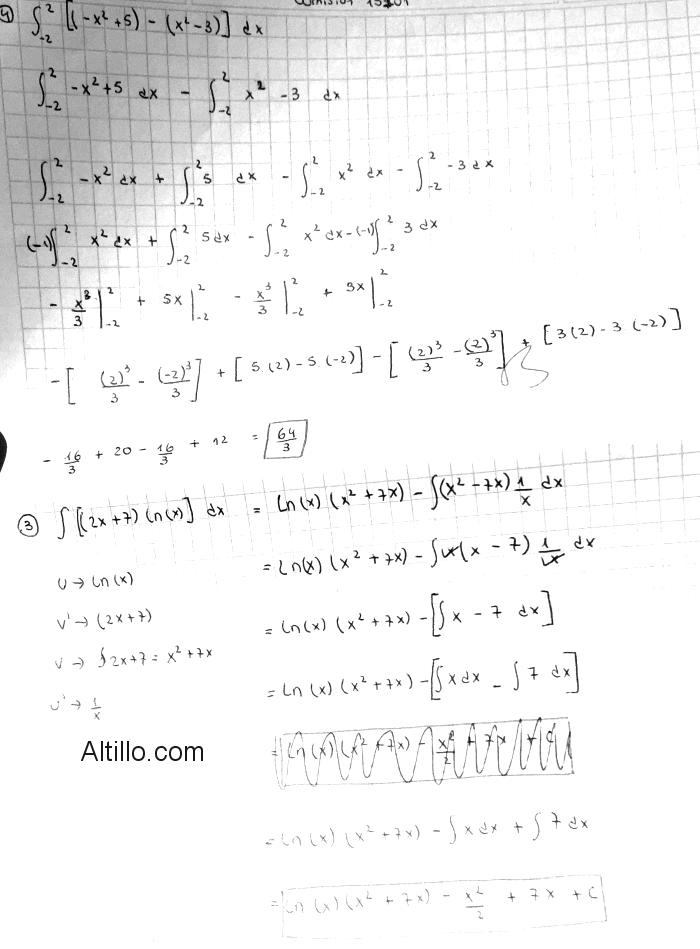 Comisión
4) ∫_{-2}^{2} [(-x² + 5) - (x² - 3)] dx
∫_{-2}^{2} -x² + 5 dx - ∫_{-2}^{2} x² - 3 dx
∫_{-2}^{2} -x² dx + ∫_{-2}^{2} 5 dx - ∫_{-2}^{2} x² dx - ∫_{-2}^{2} -3 dx
(-1)∫_{-2}^{2} x² dx + ∫_{-2}^{2} 5 dx - ∫_{-2}^{2} x² dx - (-1)∫_{-2}^{2} 3 dx
- x³/3 |_{-2}^{2} + 5x |_{-2}^{2} - x³/3 |_{-2}^{2} + 3x |_{-2}^{2}
- [ (2)³/3 - (-2)³/3 ] + [5.(2) - 5.(-2)] - [ (2)³/3 - (-2)³/3 ] + [3(2) - 3.(-2)]
- 16/3 + 20 - 16/3 + 12 = 64/3
3) ∫[(2x+7) (n(x)] dx = Ln(x) (x² + 7x) - ∫(x² - 7x) 1/x dx
U → Ln(x)
= Ln(x) (x² + 7x) - ∫x(x - 7) 1/x dx
V' → (2x+7)
= Ln(x) (x² + 7x) - [∫ x - 7 dx]
V → ∫2x+7 = x² + 7x
= Ln(x) (x² + 7x) - [∫ x dx - ∫ 7 dx]
U' → 1/x
Altillo.com
= Ln(x) (x² + 7x) - x²/2 + 7x + C
= Ln(x) (x² + 7x) - ∫ x dx + ∫ 7 dx
= Ln(x) (x² + 7x) - x²/2 + 7x + C